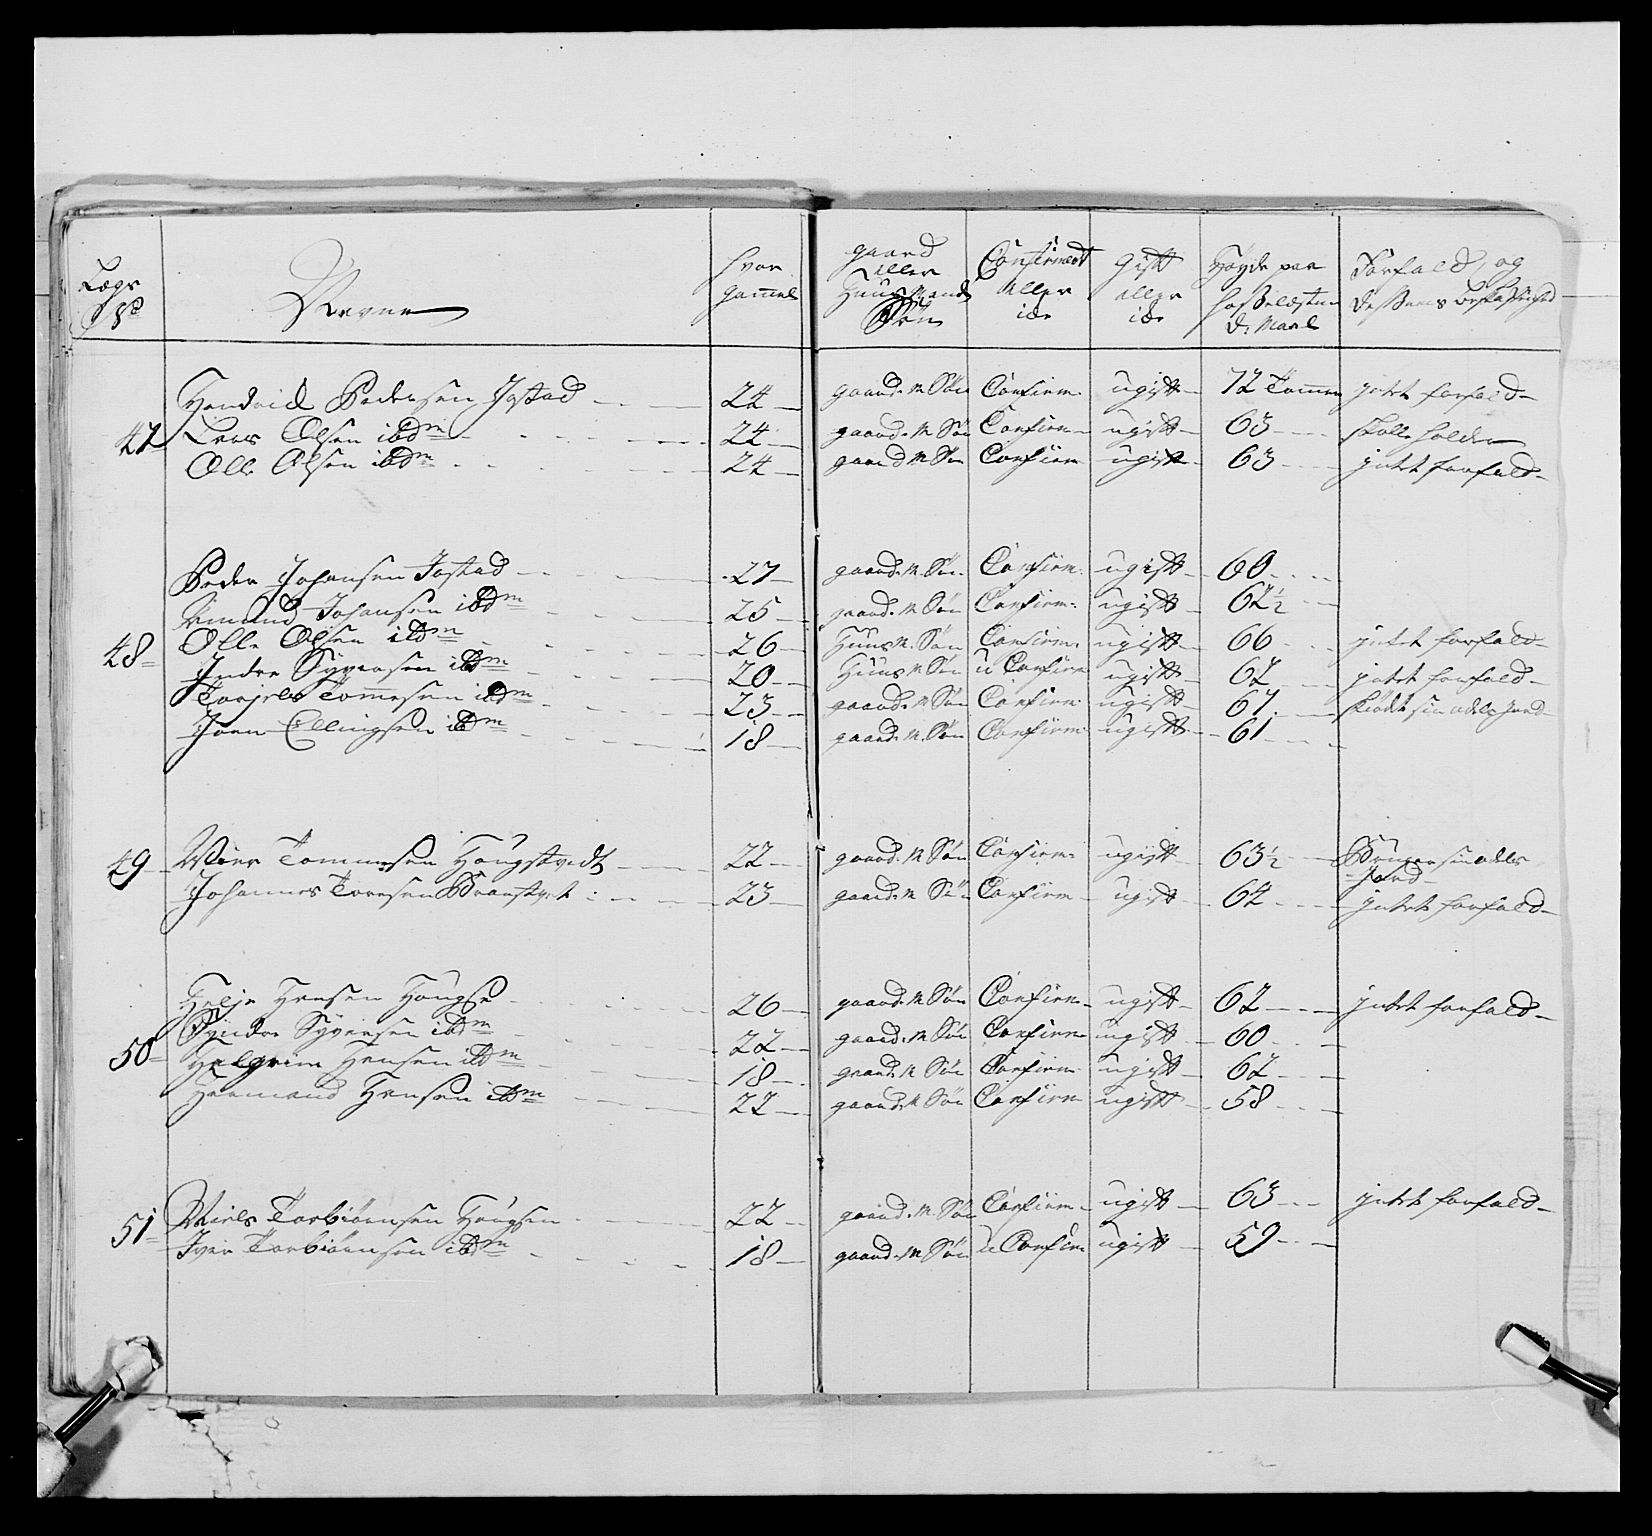 Lægs No	Navne	hvor gammel	gaard eller Huus Mands Søn	Confirmert eller icke	Gift eller icke	Høyde paa	Forfald og
	Hendrich Pedersen Jostad	24	gaard M Søn	Confirm.	ugift	72 Tommer	intet forfald
47	Lars Olsen ibdm	24	gaard M Søn	Confirm	ugift	63
	Olle Olsen ibdm	24	gaard M Søn	Confirm	ugift	63	intet forfald
	Peder Johansen Jostad	27	gaard M. Søn	Confirm.	ugift	60
	Amund Johansen ibdm	25	gaard. M Søn	Confirm:	ugift	62½
48	Olle Olsen ibdm	26	Huus M. Søn	Confirm.	ugift	66	intet forfald
	Endre Syversen ibdm	20	Huus M Søn	u Confirm	ugift	62	intet forfald
	Torjels Tommesen ibdm	23	gaard. M Søn	Confirm	ugift	67	sin odels Jord
	Joen Ellingsen ibdm	18	gaard. M. Søn	Confirm	ugift	61
49	Tommesen Hougstvedt	22	gaard. M Søn	Confirm.	ugift	63½	Bruger sin odels Jord
	Johannes Toresen	23	gaard. M Søn	Confirm	ugift	64	intet forfald
	Helje Hansen Hougse	26	gaard. M Søn	Confirm	ugift	62	intet forfald
	Syversen ibdm	22	gaard. M Søn	Confirm	ugift	60
50	Helgrim Hansen ibdm	18	gaard. M Søn	Confirm.	ugift	62
	Hermand Hansen ibdm	22	gaard. M Søn	Confirm	ugift	58
51	Niels Torbiørnsen Hougsen	22	gaard. M. Søn	Confirm	ugift	63	intet forfald
	Iver Torbiørnsen ibdm	18	gaard. M Søn	u Confirm	ugift	59